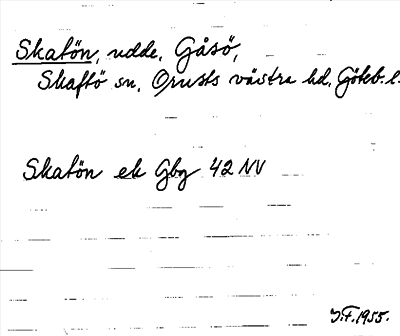 Skatön, udde, Gåsö,
Skaftö sn, Orusts västra hd. Göteb. l.
Skatön ek Gbg 42 NV
J.F. 1955.